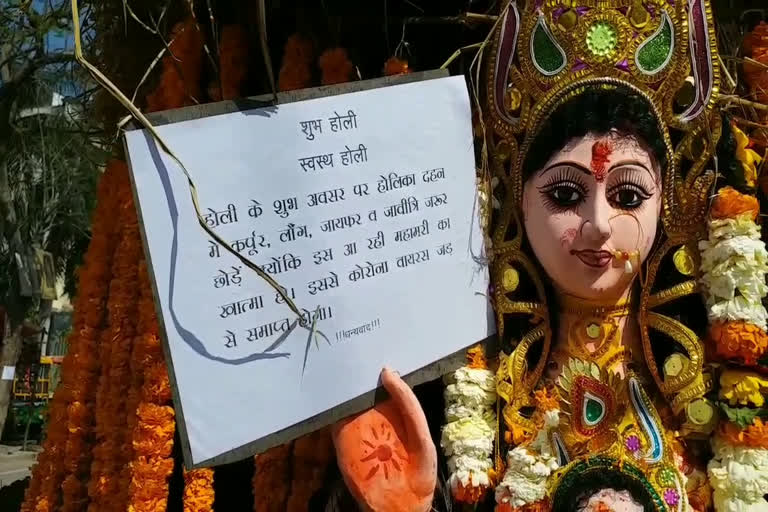 शुभ होली
स्वस्थ होली
होली के शुभ अवसर पर होलिका दहन
में कर्पूर, लौंग, जायफर व जावीत्रि जरूर
छोड़ें क्योंकि इस आ रही महामरी का
खात्मा है। इससे कोरोना वायरस जड़
से समाप्त होगा।
!!!धन्यवाद!!!